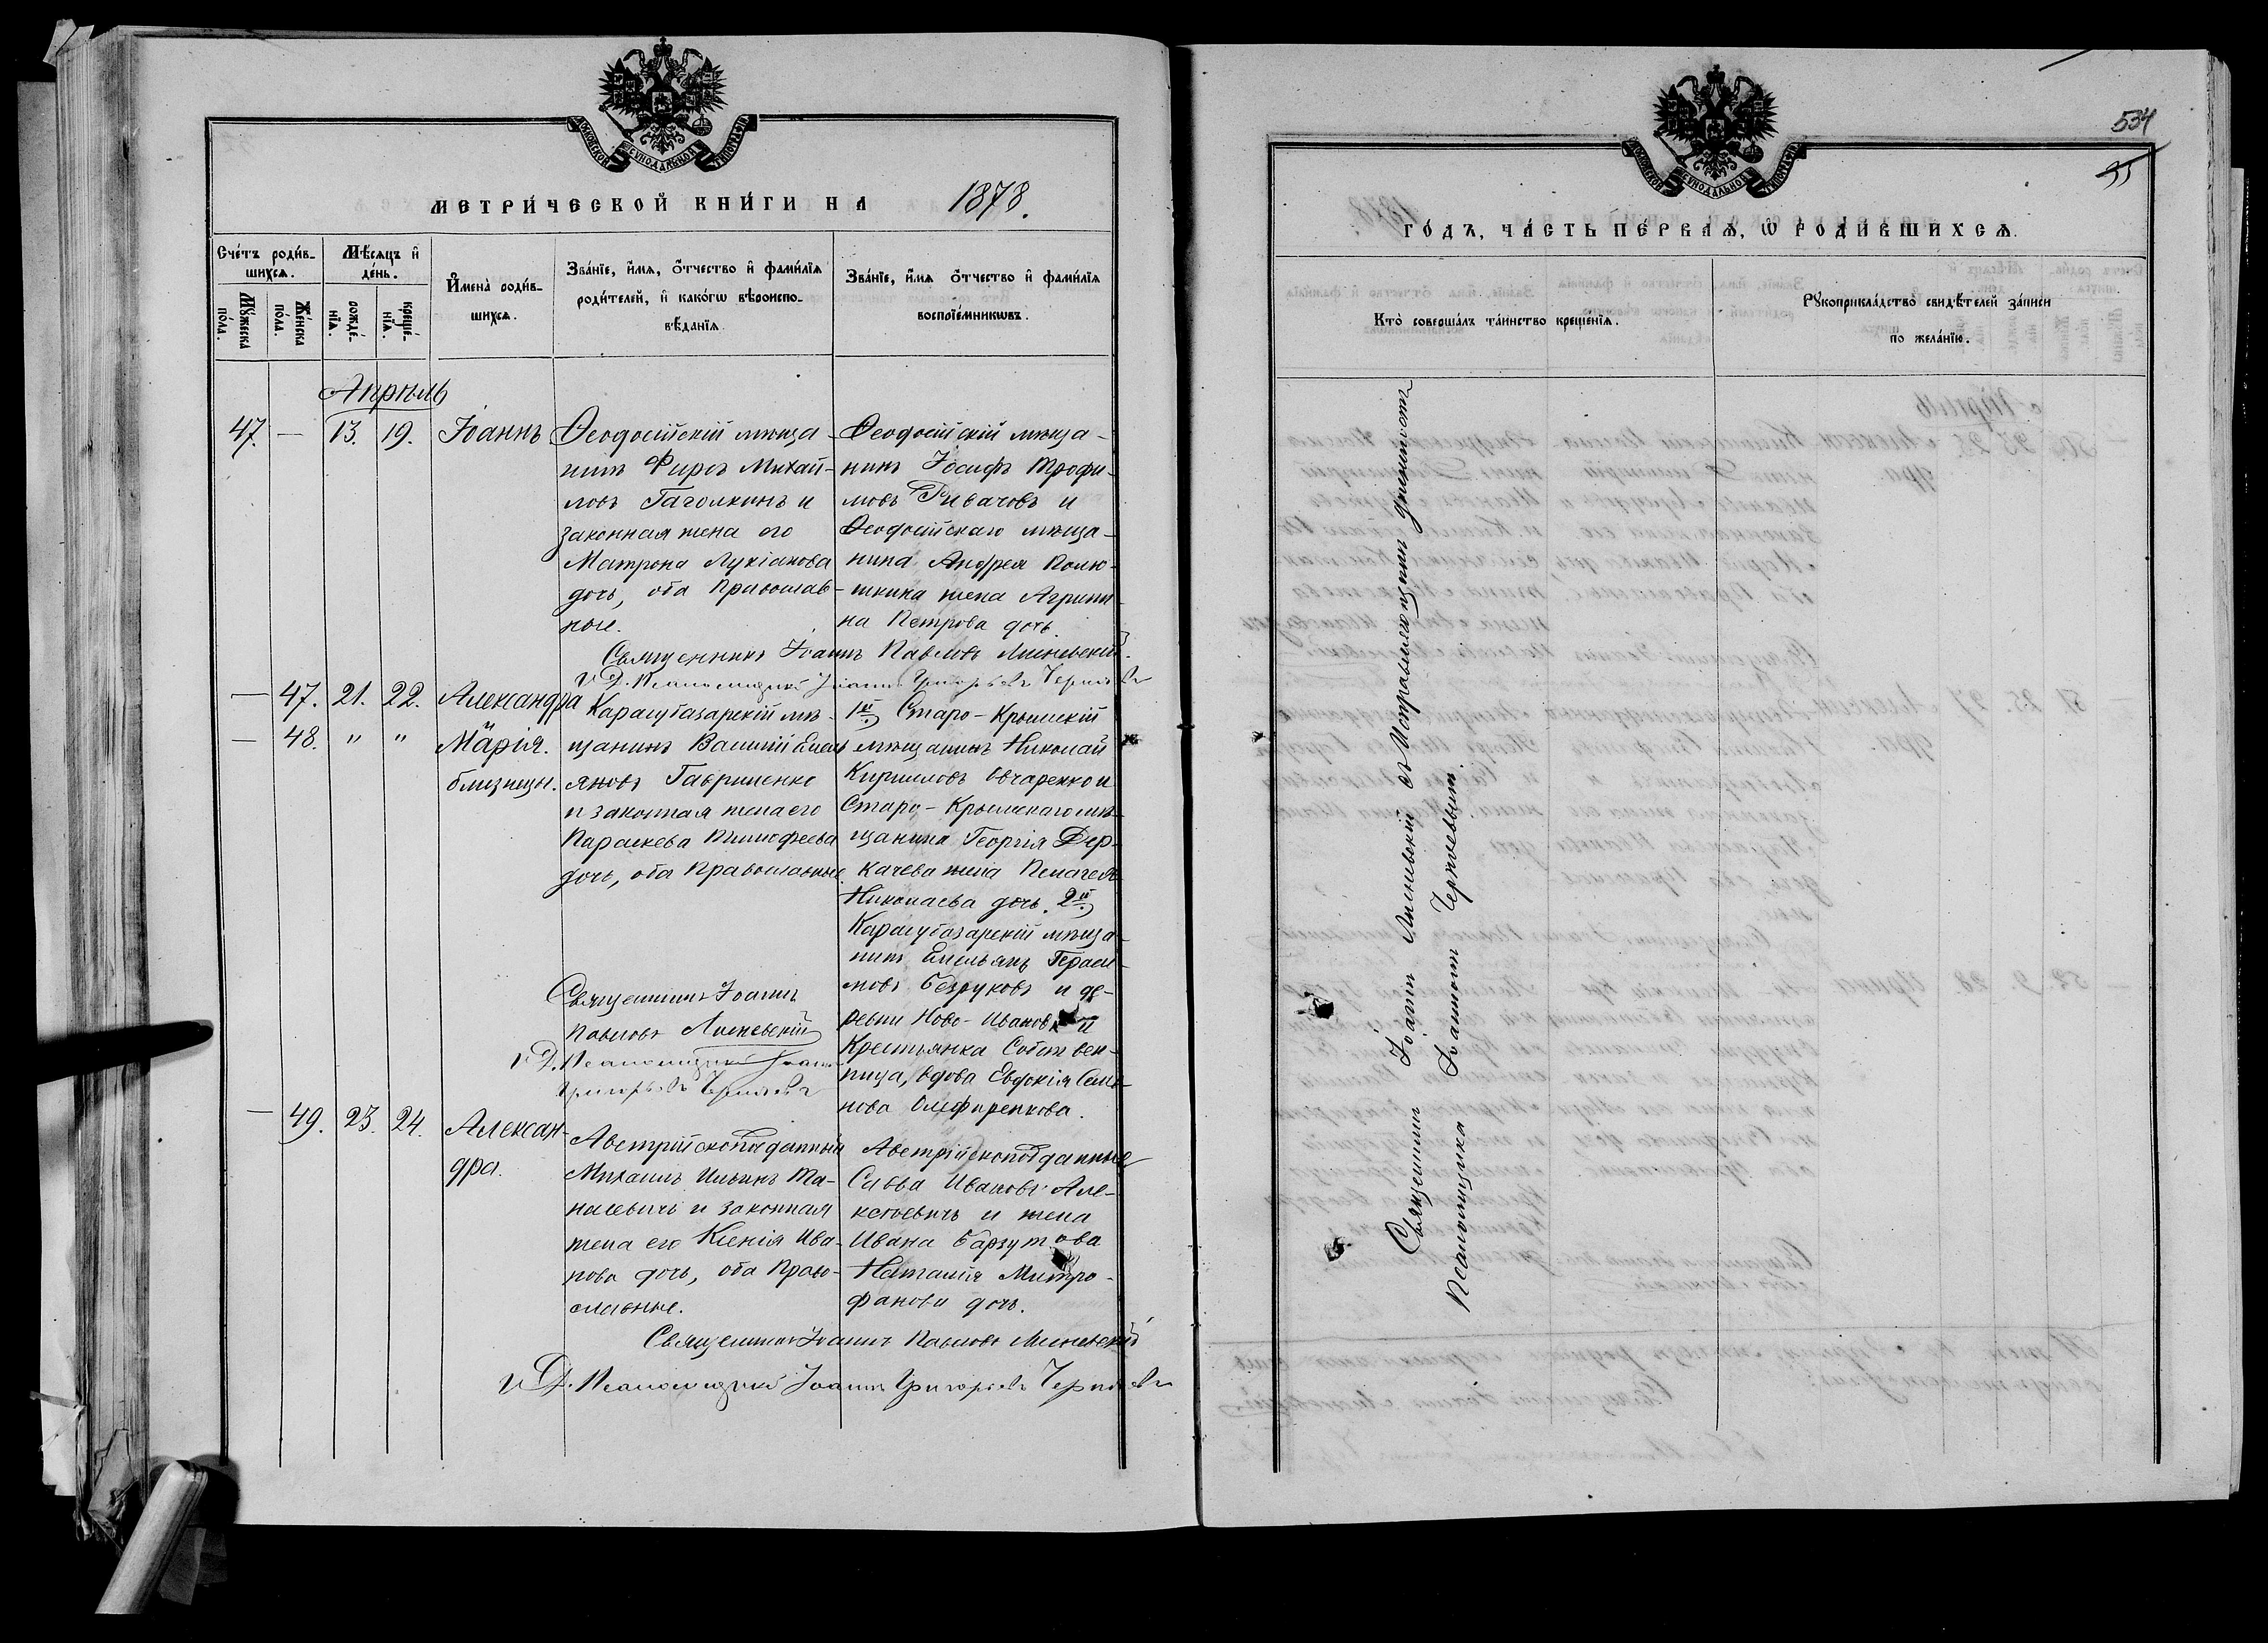 МОСКОВСКОЙ СѴНОДАЛЬНОЙ ТИПОГРАФІИ
МЕТРИ́ЧЕСКОЙ КНИ́ГИ НА 1878.
Сче́тъ роди́в-
шихсѧ.
Мѣ́сѧцъ и҆
де́нь.
Мꙋ́жеска
по́ла.
Же́нска
по́ла.
рожде́-
нїѧ.
креще́-
нїѧ.
И҆мена̀ роди́в-
шихсѧ.
Зва́нїе, и҆́мѧ, ѻ҆́тчество и҆ фами́лїѧ
роди́телей, и҆ како́гѡ вѣроиспо-
вѣ́данїѧ
Зва́нїе, и҆́мѧ ѻ҆́тчество и҆ фами́лїѧ
воспрїе́мникѡвъ.
Апрѣль
47. — 13. 19. Іоаннъ
Ѳеодосійскій мѣща-
нинъ Фирсъ Михай-
ловъ Гаголкинъ и
законная жена его
Матрона Лукіанова
дочь, оба Православ-
ные.
Ѳеодосійскій мѣща-
нинъ Іосифъ Трофи-
мовъ Ривачовъ и
Ѳеодосійскаго мѣща-
нина Андрея Полю-
шкина жена Агрипи-
на Петрова дочь.
Священникъ Іоаннъ Павловъ Лисневскій.
И Д. Псаломщика Іоаннъ Григорьевъ Черняевъ
— 47. 21. 22. Александра
— 48. " " Марія.
близнецы.
Карасубазарскій мѣ-
щанинъ Василій Емель
яновъ Гавриленко
и законная жена его
Параскева Тимофеева
дочь, оба Православные.
1й) Старо-Крымскій
мѣщанинъ Николай
Кирилловъ Овчаренко и
Старо-Крымскаго мѣ-
щанина Георгія Дер-
качева жена Пелагея
Николаева дочь. 2й)
Карасубазарскій мѣща-
нинъ Емельянъ Гераси-
мовъ Безруковъ и де-
ревни Ново-Ивановки
Крестьянка Собствен-
ница, вдова Евдокія Семе-
нова Олефиренкова.
Священникъ Іоаннъ
Павловъ Лисневскій
И Д. Псаломщика Іоаннъ
Григорьевъ Черняевъ
— 49. 23. 24. Алексан-
дра.
Австрійскоподданный
Михаилъ Ильинъ Та-
насевичъ и законная
жена его Ксенія Ива-
нова дочь, оба Право-
славные.
Австрійскоподданные
Савва Ивановъ Але-
ксіевичъ и жена
Ивана Барзутова
Наталія Митро-
фанова дочь.
Священникъ Іоаннъ Павловъ Лисневскій
И Д. Псаломщика Іоаннъ Григорьевъ Черняевъ
534
55
МОСКОВСКОЙ СѴНОДАЛЬНОЙ ТИПОГРАФІИ
ГО́ДЪ, ЧА́СТЬ ПЕ́РВАѦ, Ѽ РОДИ́ВШИХСѦ.
Кто̀ соверша́лъ та́инство креще́нїѧ.
Рꙋкоприкла́дство свидѣ́телей за́писи
по жела́нїю.
Священникъ Іоаннъ Лисневскій съ Исправляющимъ должность
Псаломщика Іоанномъ Черняевымъ.